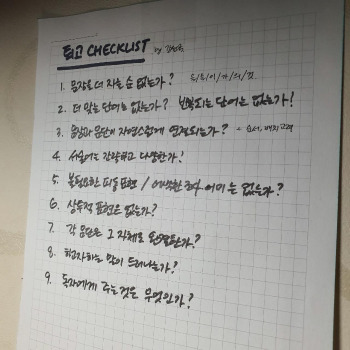 퇴고 CHECKLIST by
1. 문장을 더 자를 순 없는가?
2. 더 맞는 단어는 없는가? 반복되는 단어는 없는가!
3. 문장과 문단이 자연스럽게 연결되는가? - 순서, 배치 고려
4. 서술어는 간략하고 다양한가!
5. 불필요한 피동 표현 / 어색한 어미는 없는가?
6. 상투적 표현은 없는가?
7. 각 문단은 그 자체로 완결한가?
8. 하고자하는 말이 드러나는가?
9. 독자에게 주는 것은 무엇인가?